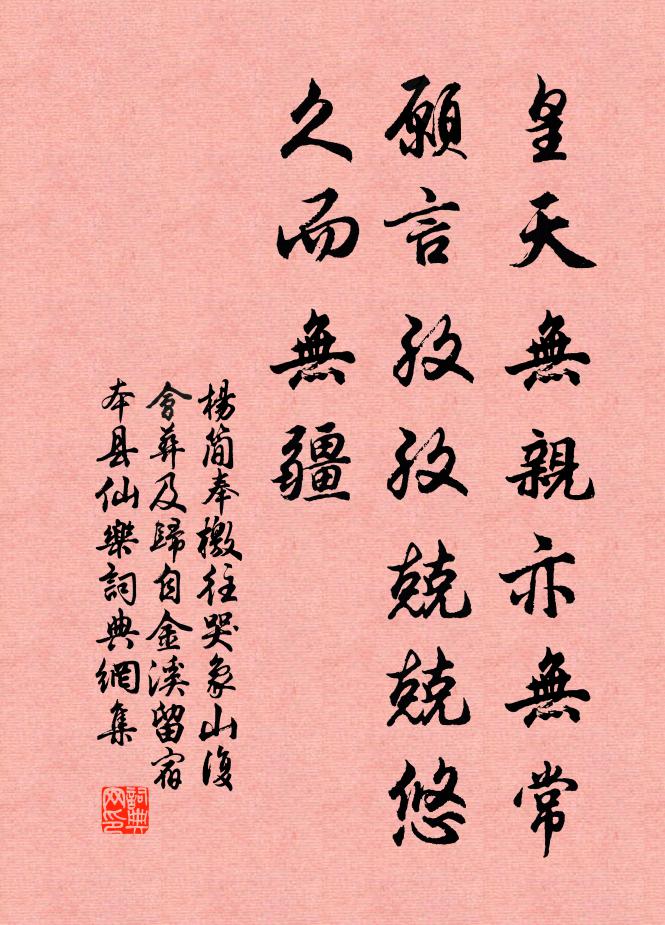 皇天無親亦無常
願言孜孜兢兢悠
久而無疆
楊簡奉檄往哭象山復
會葬及歸自金溪留宿
本县仙樂詞典網集
詞典
网印